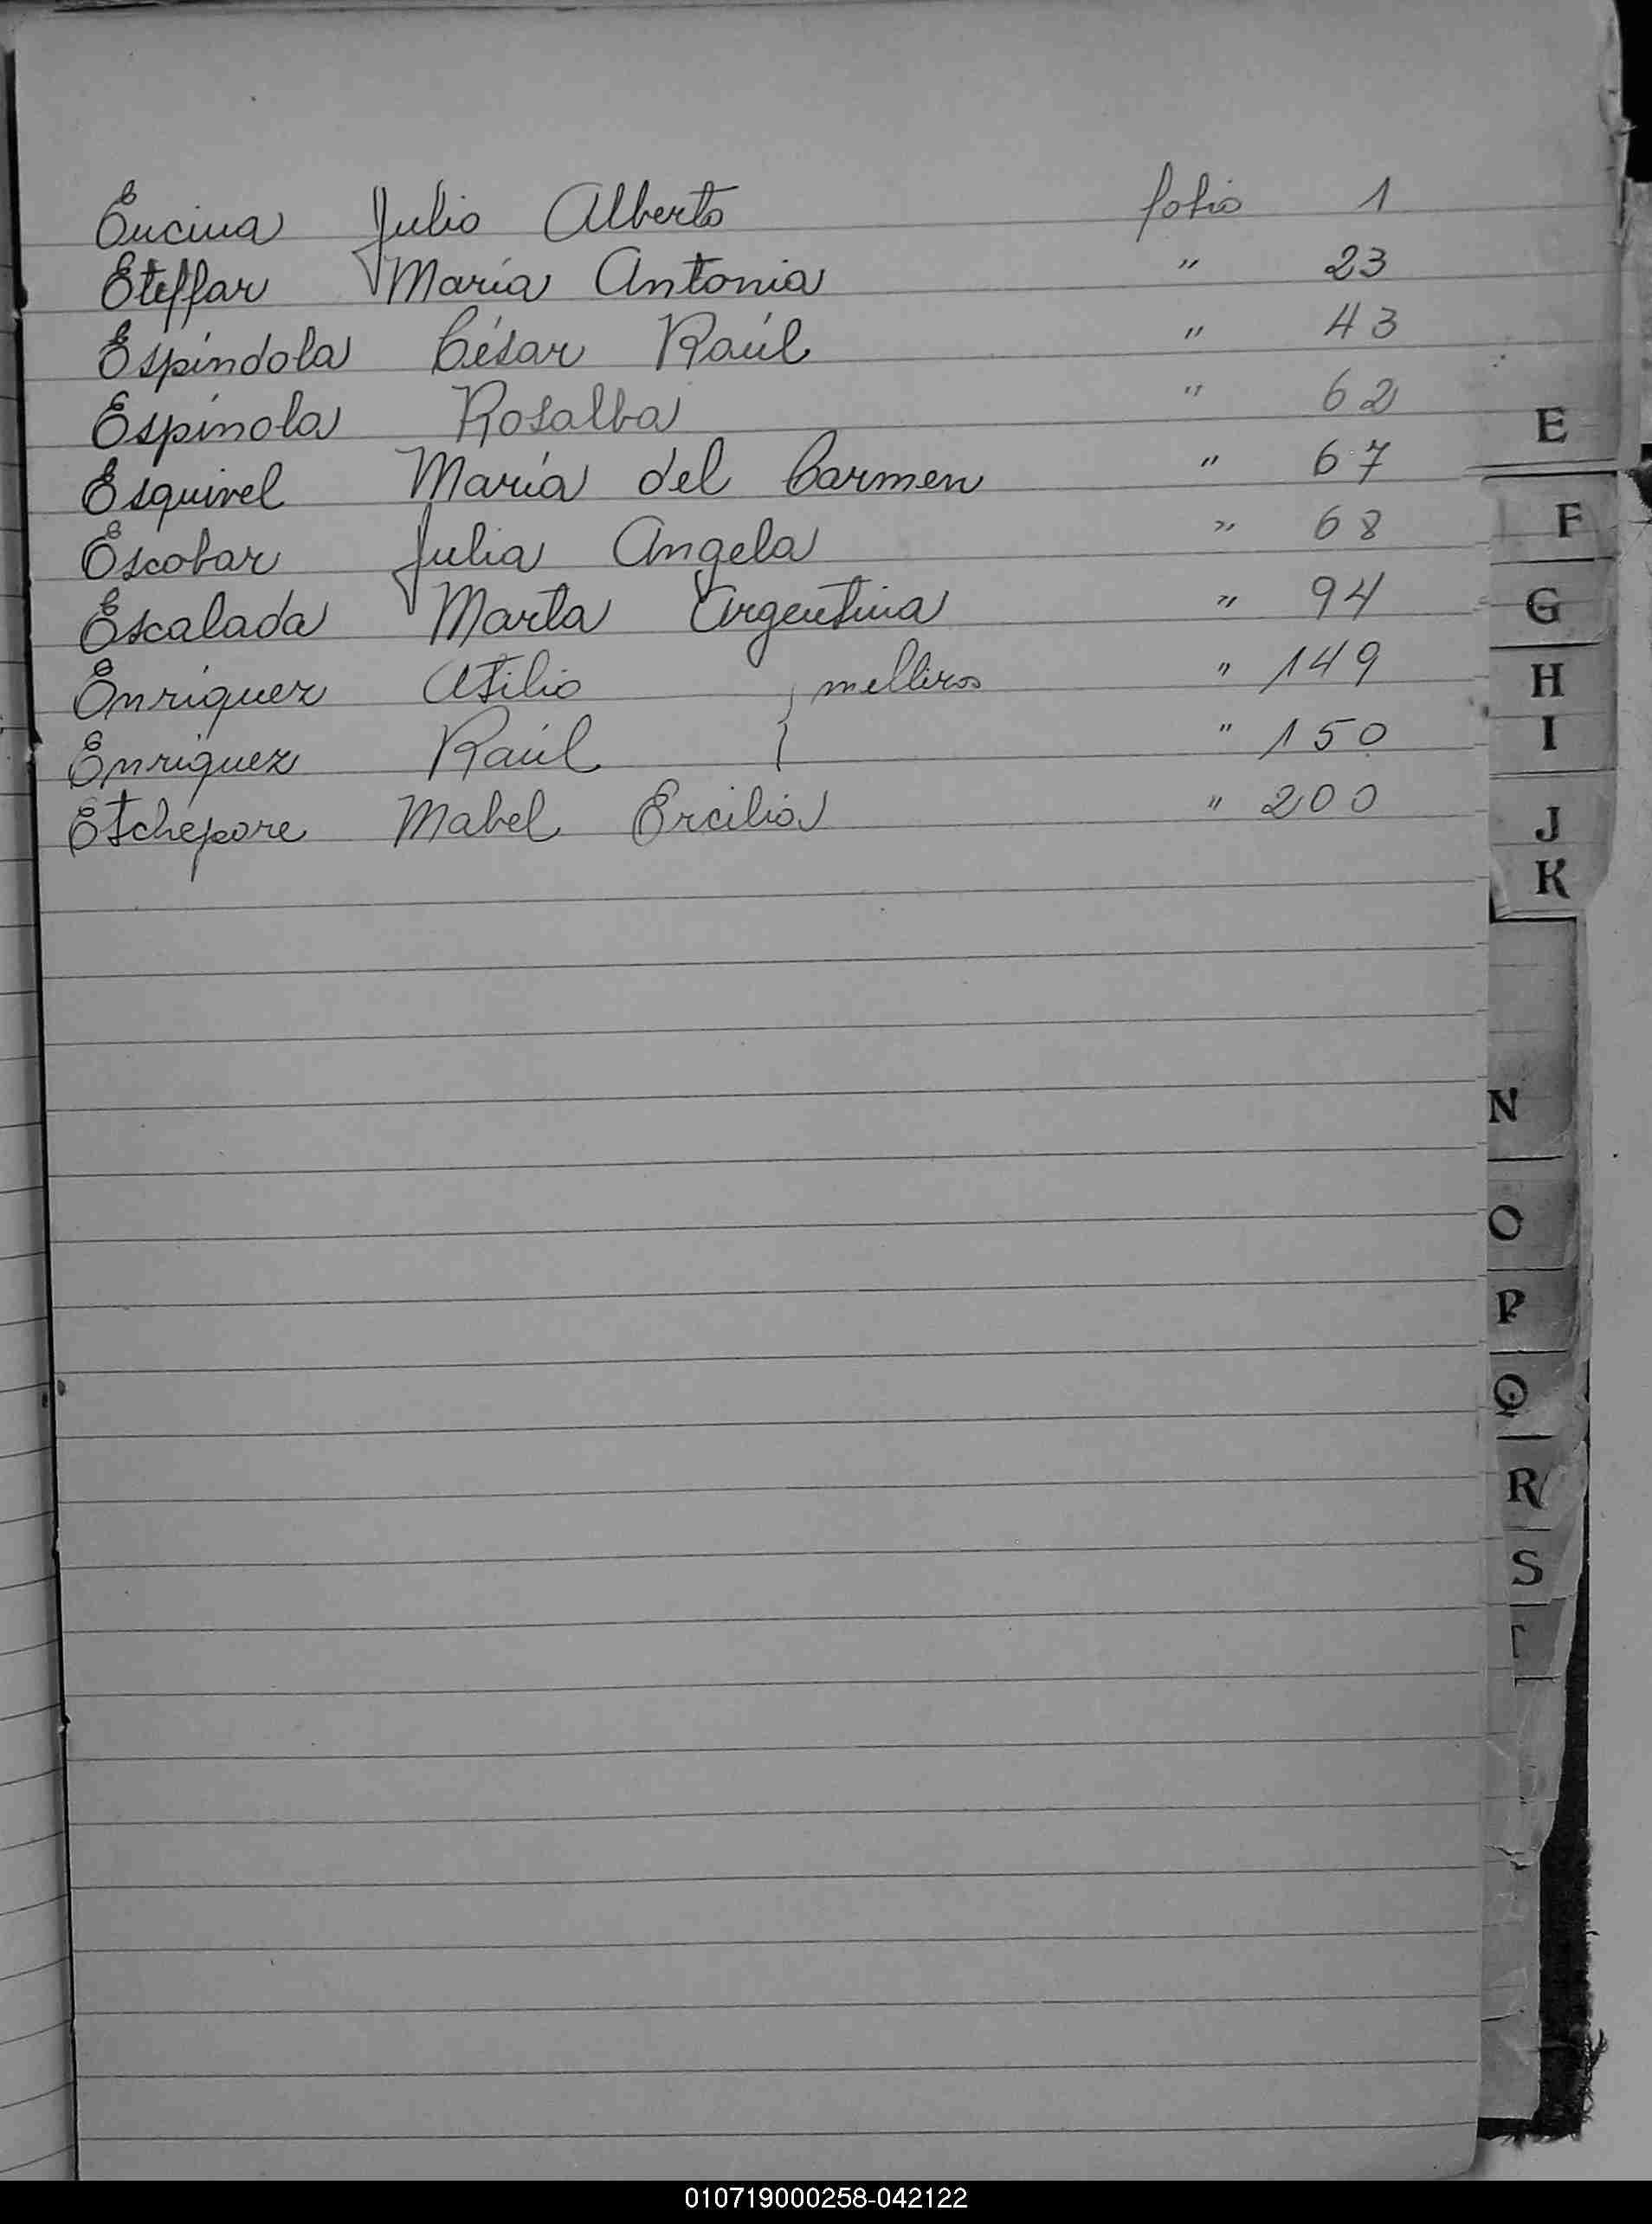 Encina Julio Alberto folio 1
Eteffar María Antonia " 23
Espíndola César Raúl " 43
Espínola Rosalba " 62
Esquivel María del Carmen " 67
Escobar Julia Angela " 68
Escalada Marta Argentina " 94
Enriquez Atilio } mellizos " 149
Enriquez Raúl } " 150
Etchepare Mabel Ercilia " 200
E
F
G
H
I
J
K
N
O
P
Q
R
S
010719000258-042122